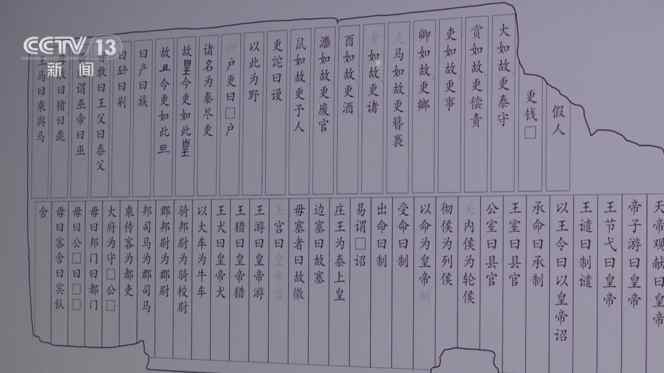 CCTV 13
新闻
假人
更钱□
大如故更泰守
赏如故更偿责
吏如故更事
卿如故更鄉
马如故更簪裹
如故更诸
酉如故更酒
灋如故更废官
鼠如故更予人
更詑曰谩
以此为野
户更曰□户
诸名为秦尽更
故皇今更如此皇
故旦今更如此旦
曰产曰族
曰 曰荆
敢曰王父曰泰父
谓巫帝曰巫
曰猪曰彘
马曰乘舆马
天帝观献曰皇帝
帝子游曰皇帝
王节弋曰皇帝
王谴曰制谴
以王令曰以皇帝诏
承命曰承制
王室曰县官
公室曰县官
内侯为轮侯
彻侯为列侯
以命为皇帝
受命曰制
出命曰制
易谓□诏
庄王为泰上皇
边塞曰故塞
毋塞者曰故徼
宫曰皇帝
王游曰皇帝游
王猎曰皇帝猎
王犬曰皇帝犬
以大车为牛车
骑邦尉为骑校尉
郡邦尉为郡尉
邦司马为郡司马
乘传客为都吏
大府为守□公□
毋曰邦门曰都门
毋曰公□曰□□
毋曰客舍曰宾飤
舍